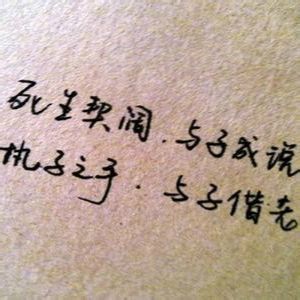 死生契阔.与子成说
执子之手.与子借老